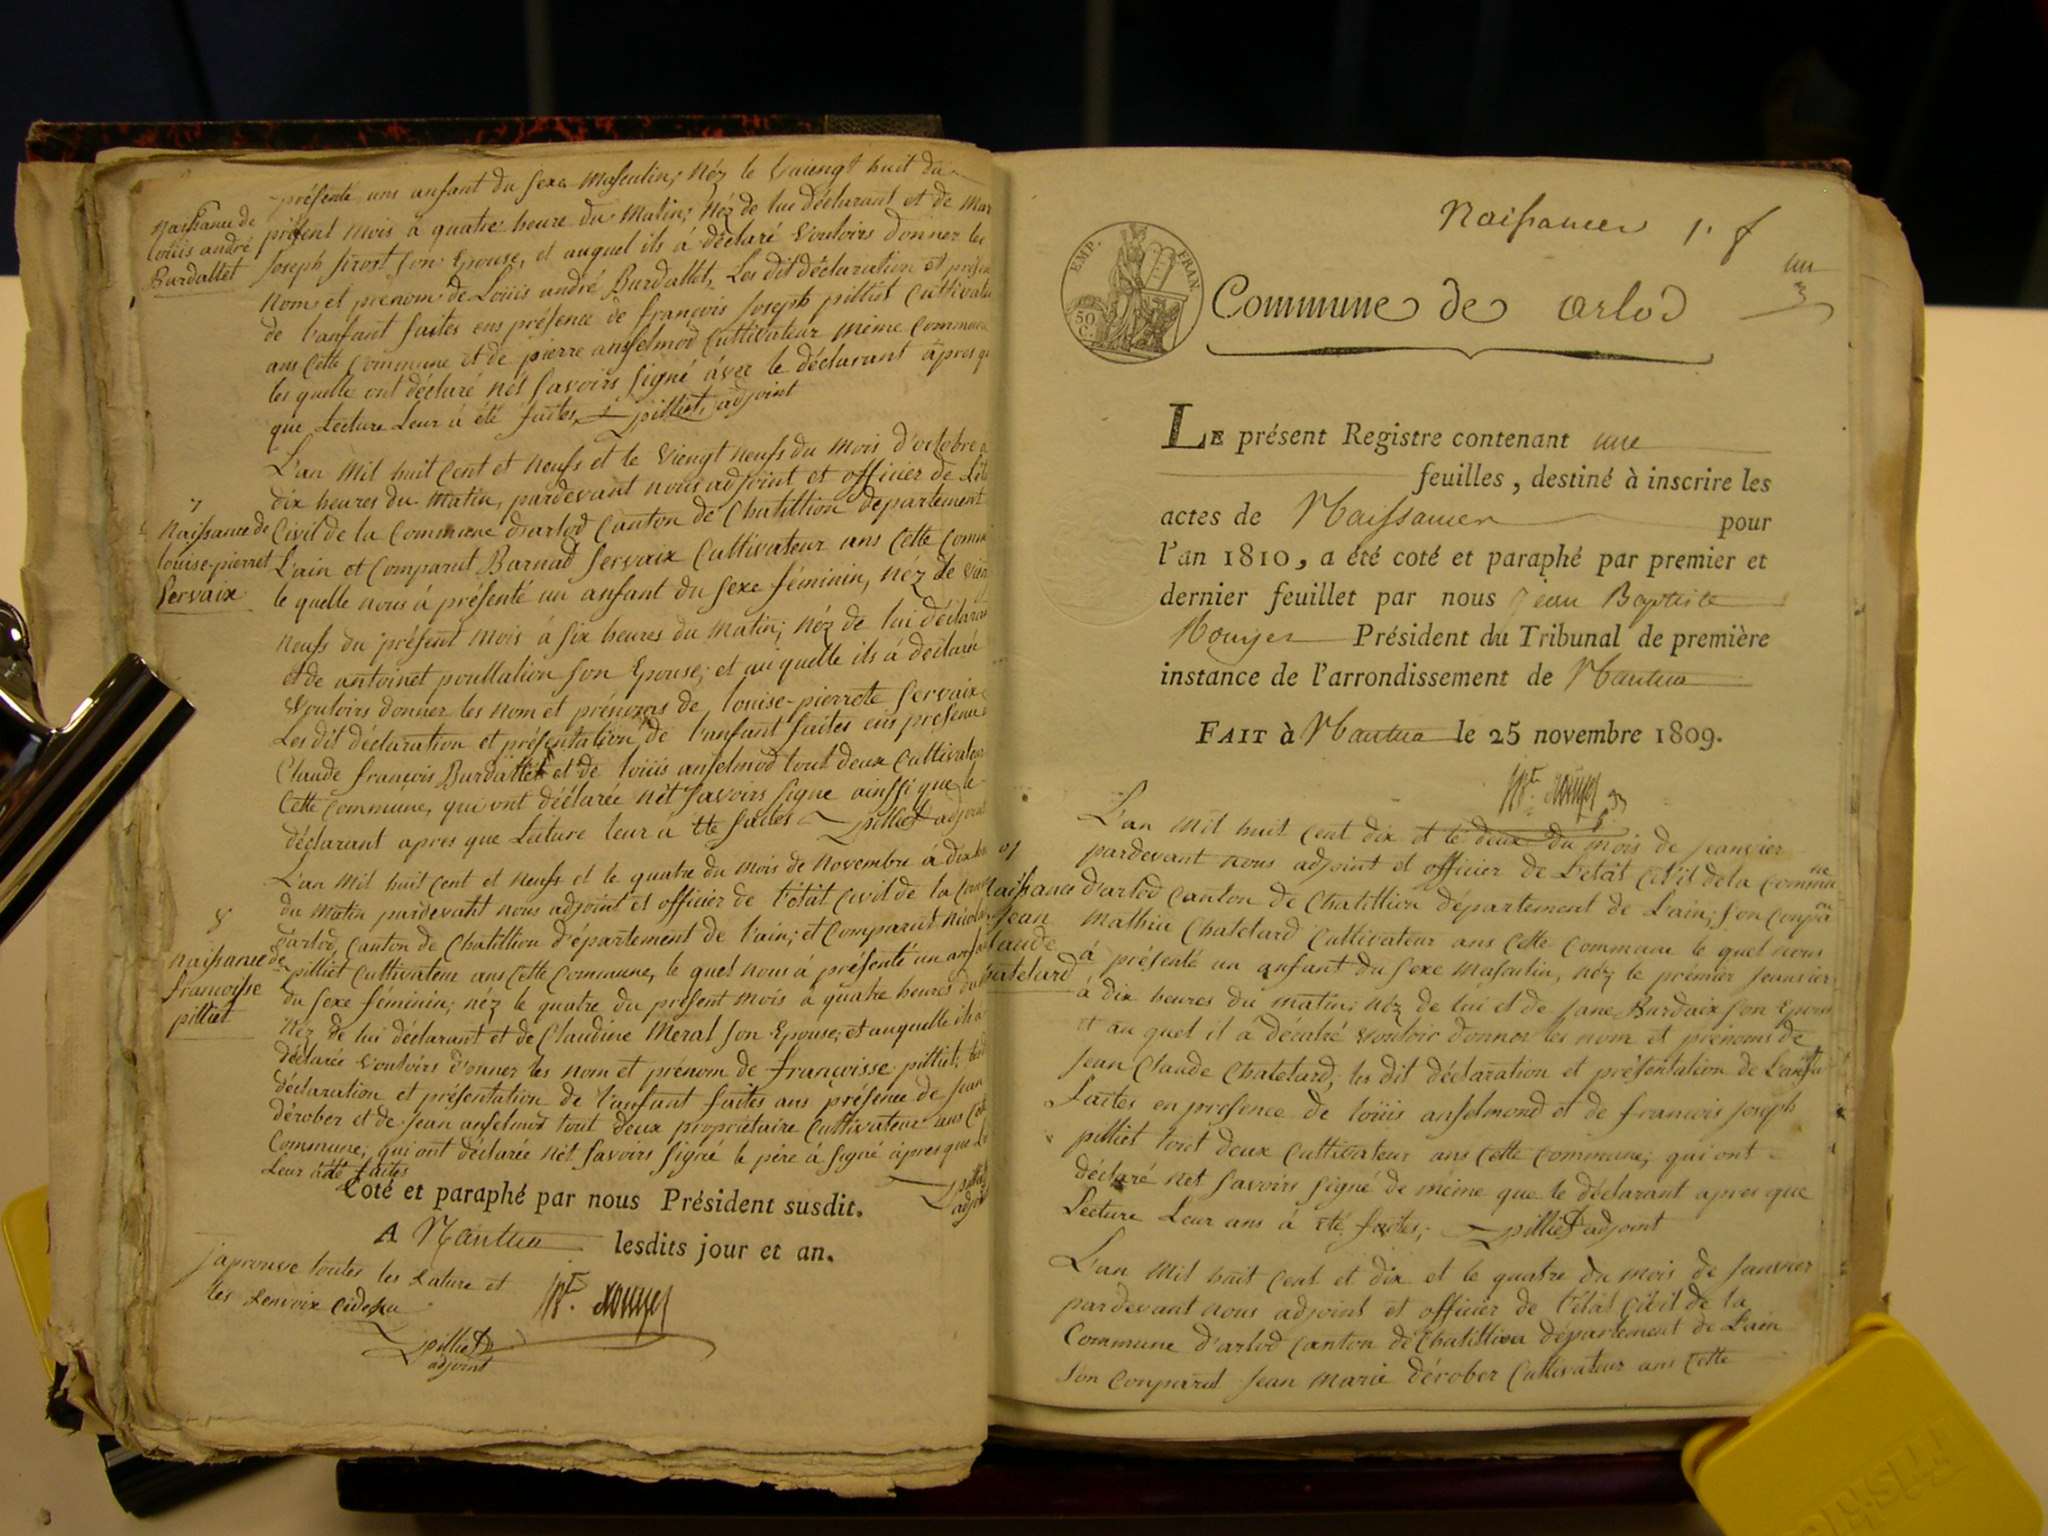 présenté uns anfant du sexe masculin; néz le vaiengt huit du
Naissance de
louis andré
Burdallet
présent mois à quatre heure du matin; néz de lui déclarant et de mar
joseph son Epouse, et auquel ils à déclaré vouloirs donner les
nom et prenom de Loüis andré Burdallet, Les dit déclaration et présen
de l'anfant faites ens présence de françois joseph pilliet cultivate
ans cette commune et de pierre anselmod cultivateur même commune
les quelle ont déclaré nét savoirs signé àvec le déclarant âpres qu
que Lecture Leur à été faites pilliet, adjoint
L'an mil huit cent et neufs et le viengt neufs du mois d'octobre a
dix heures du matin, pardevant nous adjoint et officier de L'ét
7
Naissance de
louise-pierret
Servaix
Civil de la Commune d'arlod Canton de Chatillion département
L'ain et Comparut Barnad Servaix Cultivateur ans Cette Comm
le quelle nous à présenté un anfant du sexe féminin, néz le vien
neufs du présent mois à six heures du matin; néz de lui déclaran
et de antoinet poullation son Epouse; et au quelle ils à déclaré
vouloirs donner les nom et prénoms de louise-pierrete Servaix
Les dit déclaration et présentation de l'anfant faites ens presence
Claude françois Burdallet et de loüis anselmod tout deux cultivateu
Cette Commune, qui ont déclarée nét savoirs signe ainssi que le
déclarant apres que Lecture leur à été faites pilliet adjoint
L'an mil huit cent et neufs et le quatre du mois de novembre à dix
du matin pardevant nous adjoint et officier de l'état Civil de la Com
8
Naissance de
françoisse
pilliet
d'arlod, Canton de Chatillion d'épartement de l'ain; et Comparut nicola
pilliet Cultivateur ans Cette Commune, le quel nous à présenté un anfa
du sexe féminin; néz le quatre du présent mois à quatre heures du
néz de lui déclarant et de Claudine Meral son Epouse; et auquelle ils à
déclarée vouloirs donner les nom et prénom de françoisse pilliet; les
déclaration et présentation de l'anfant faites ans présence de jean
dérober et de jean anselmod tout deux propriétaire cultivateur ans Cet
Commune, qui ont déclarée nét savoirs signé le père à signé âpres que L
Leur à été faites
pilliet
adjoint
Coté et paraphé par nous Président susdit.
A Nantua lesdits jour et an.
j'aprouve toutes les rature et
les renvoix cidesu
pilliet
adjoint
Naissances 1. f
un
EMP. FRAN.
50 C.
Commune de arlod
LE présent Registre contenant une
feuilles, destiné à inscrire les
actes de Naissances pour
l'an 1810, a été coté et paraphé par premier et
dernier feuillet par nous Jean Baptiste
Rouyer Président du Tribunal de première
instance de l'arrondissement de Nantua
FAIT à Nantua le 25 novembre 1809.
L'an mil huit cent dix et le deux du mois de janvier
pardevant nous adjoint et officier de L'etat Civil de la commune
Naissance
jean
Claude
Chatelard
d'arlod Canton de Chatillion département de L'ain; s'on conpa
Mathieu Chatelard Cultivateur ans Cette Commune le quel nous
à présenté un anfant du sexe Masculin, néz le premier jeanvier
à dix heures du matin; néz de lui et de jane Burdaix son Epous
et au quel il à déclaré vouloir donner les nom et prénoms de
jean Claude Chatelard; les dit déclaration et présentation de L'anfa
faites en présence de loüis anselmond et de françois joseph
pilliet tout deux cultivateur ans Cette commune; qui ont
déclaré nét savoirs signé de même que le déclarant apres que
Lecture Leur ans à été faites; pilliet adjoint
L'an mil huit cent et dix et le quatre du mois de janvier
pardevant nous adjoint et officier de l'état Civil de la
Commune d'arlod Canton de Chatillion département de L'ain
s'on conparut jean marie dérober Cultivateur ans Cette